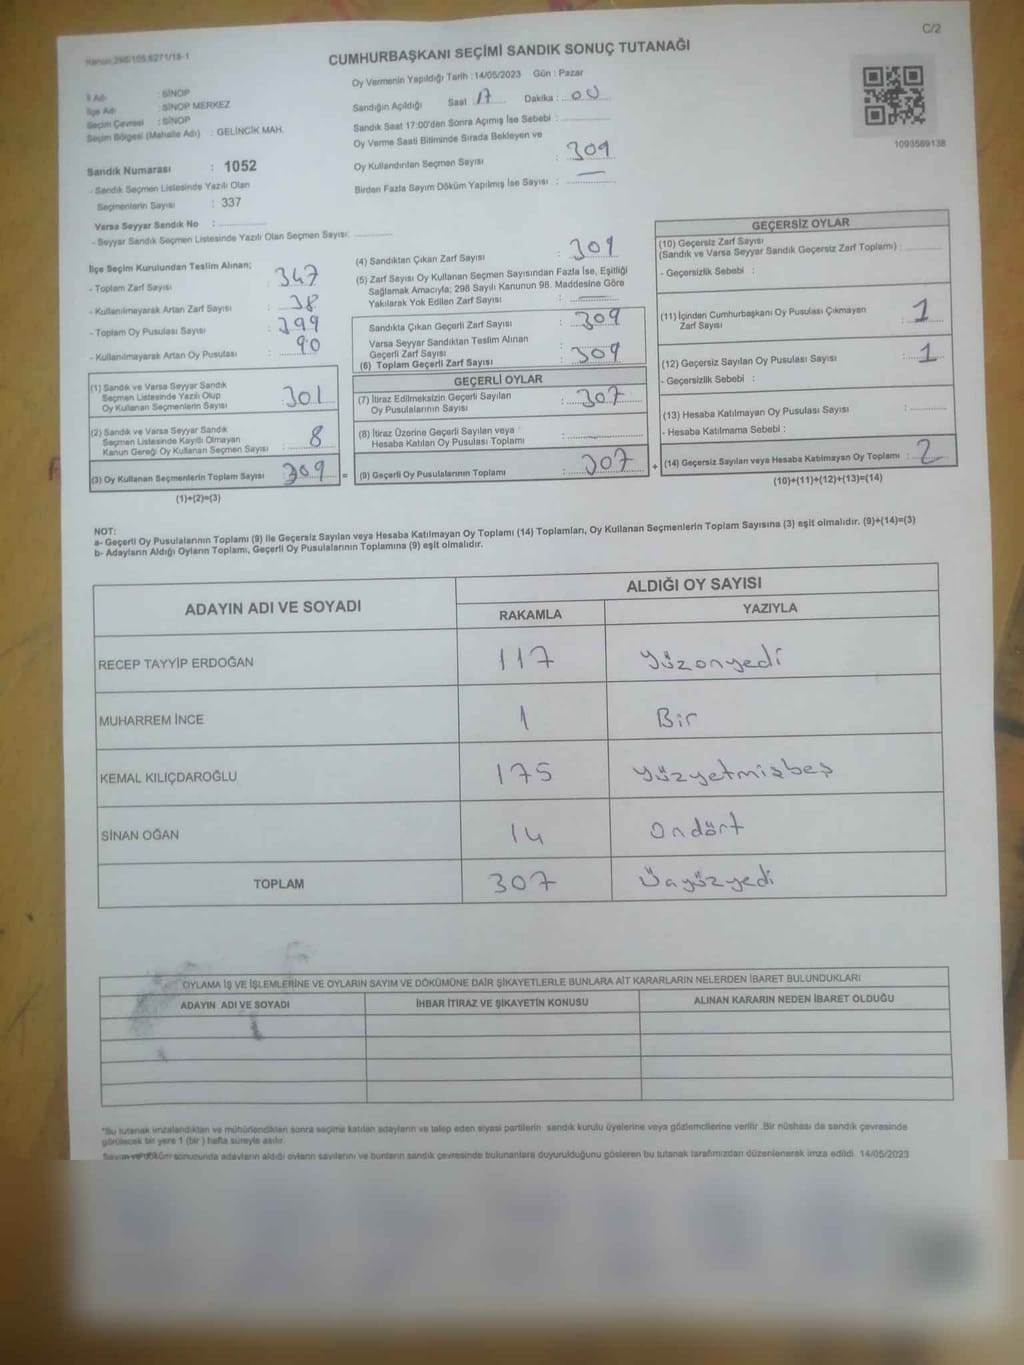 C/2
Kanun:298/105.6271/18-1
CUMHURBAŞKANI SEÇİMİ SANDIK SONUÇ TUTANAĞI
Oy Vermenin Yapıldığı Tarih :14/05/2023 Gün : Pazar
İl Adı : SİNOP
İlçe Adı : SİNOP MERKEZ
Seçim Çevresi : SİNOP
Seçim Bölgesi (Mahalle Adı) : GELİNCİK MAH.
Sandık Numarası : 1052
- Sandık Seçmen Listesinde Yazılı Olan
Seçmenlerin Sayısı : 337
Varsa Seyyar Sandık No :
- Seyyar Sandık Seçmen Listesinde Yazılı Olan Seçmen Sayısı:
Sandığın Açıldığı Saat 17 Dakika : 00
Sandık Saat 17:00'den Sonra Açımış İse Sebebi :
Oy Verme Saati Bitiminde Sırada Bekleyen ve
Oy Kullandırılan Seçmen Sayısı : 309
Birden Fazla Sayım Döküm Yapılmış İse Sayısı : —
1093569138
İlçe Seçim Kurulundan Teslim Alınan;
- Toplam Zarf Sayısı : 347
- Kullanılmayarak Artan Zarf Sayısı : 38
- Toplam Oy Pusulası Sayısı : 399
- Kullanılmayarak Artan Oy Pusulası : 90
(1) Sandık ve Varsa Seyyar Sandık
Seçmen Listesinde Yazılı Olup
Oy Kullanan Seçmenlerin Sayısı : 301
(2) Sandık ve Varsa Seyyar Sandık
Seçmen Listesinde Kayıtlı Olmayan
Kanun Gereği Oy Kullanan Seçmen Sayısı : 8
(3) Oy Kullanan Seçmenlerin Toplam Sayısı : 309 =
(1)+(2)=(3)
(4) Sandıktan Çıkan Zarf Sayısı : 309
(5) Zarf Sayısı Oy Kullanan Seçmen Sayısından Fazla İse, Eşitliği
Sağlamak Amacıyla; 298 Sayılı Kanunun 98. Maddesine Göre
Yakılarak Yok Edilen Zarf Sayısı : —
Sandıkta Çıkan Geçerli Zarf Sayısı : 309
Varsa Seyyar Sandıktan Teslim Alınan
Geçerli Zarf Sayısı
(6) Toplam Geçerli Zarf Sayısı : 309
GEÇERLİ OYLAR
(7) İtiraz Edilmeksizin Geçerli Sayılan
Oy Pusulalarının Sayısı : 307
(8) İtiraz Üzerine Geçerli Sayılan veya
Hesaba Katılan Oy Pusulası Toplamı :
(9) Geçerli Oy Pusulalarının Toplamı : 307 +
GEÇERSİZ OYLAR
(10) Geçersiz Zarf Sayısı
(Sandık ve Varsa Seyyar Sandık Geçersiz Zarf Toplamı) :
- Geçersizlik Sebebi :
(11) İçinden Cumhurbaşkanı Oy Pusulası Çıkmayan
Zarf Sayısı : 1
(12) Geçersiz Sayılan Oy Pusulası Sayısı : 1
- Geçersizlik Sebebi :
(13) Hesaba Katılmayan Oy Pusulası Sayısı :
- Hesaba Katılmama Sebebi :
(14) Geçersiz Sayılan veya Hesaba Katılmayan Oy Toplamı : 2
(10)+(11)+(12)+(13)=(14)
NOT:
a- Geçerli Oy Pusulalarının Toplamı (9) ile Geçersiz Sayılan veya Hesaba Katılmayan Oy Toplamı (14) Toplamları, Oy Kullanan Seçmenlerin Toplam Sayısına (3) eşit olmalıdır. (9)+(14)=(3)
b- Adayların Aldığı Oyların Toplamı, Geçerli Oy Pusulalarının Toplamına (9) eşit olmalıdır.
ADAYIN ADI VE SOYADI ALDIĞI OY SAYISI
RAKAMLA YAZIYLA
RECEP TAYYİP ERDOĞAN 117 Yüzonyedi
MUHARREM İNCE 1 Bir
KEMAL KILIÇDAROĞLU 175 yüzyetmişbeş
SİNAN OĞAN 14 Ondört
TOPLAM 307 Üçyüzyedi
OYLAMA İŞ VE İŞLEMLERİNE VE OYLARIN SAYIM VE DÖKÜMÜNE DAİR ŞİKAYETLERLE BUNLARA AİT KARARLARIN NELERDEN İBARET BULUNDUKLARI
ADAYIN ADI VE SOYADI İHBAR İTİRAZ VE ŞİKAYETİN KONUSU ALINAN KARARIN NEDEN İBARET OLDUĞU
*Bu tutanak imzalandıktan ve mühürlendikten sonra seçime katılan adayların ve talep eden siyasi partilerin sandık kurulu üyelerine veya gözlemcilerine verilir .Bir nüshası da sandık çevresinde
görülecek bir yere 1 (bir ) hafta süreyle asılır.
Sayım ve döküm sonucunda adayların aldığı oyların sayılarını ve bunların sandık çevresinde bulunanlara duyurulduğunu gösteren bu tutanak tarafımızdan düzenlenerek imza edildi. 14/05/2023